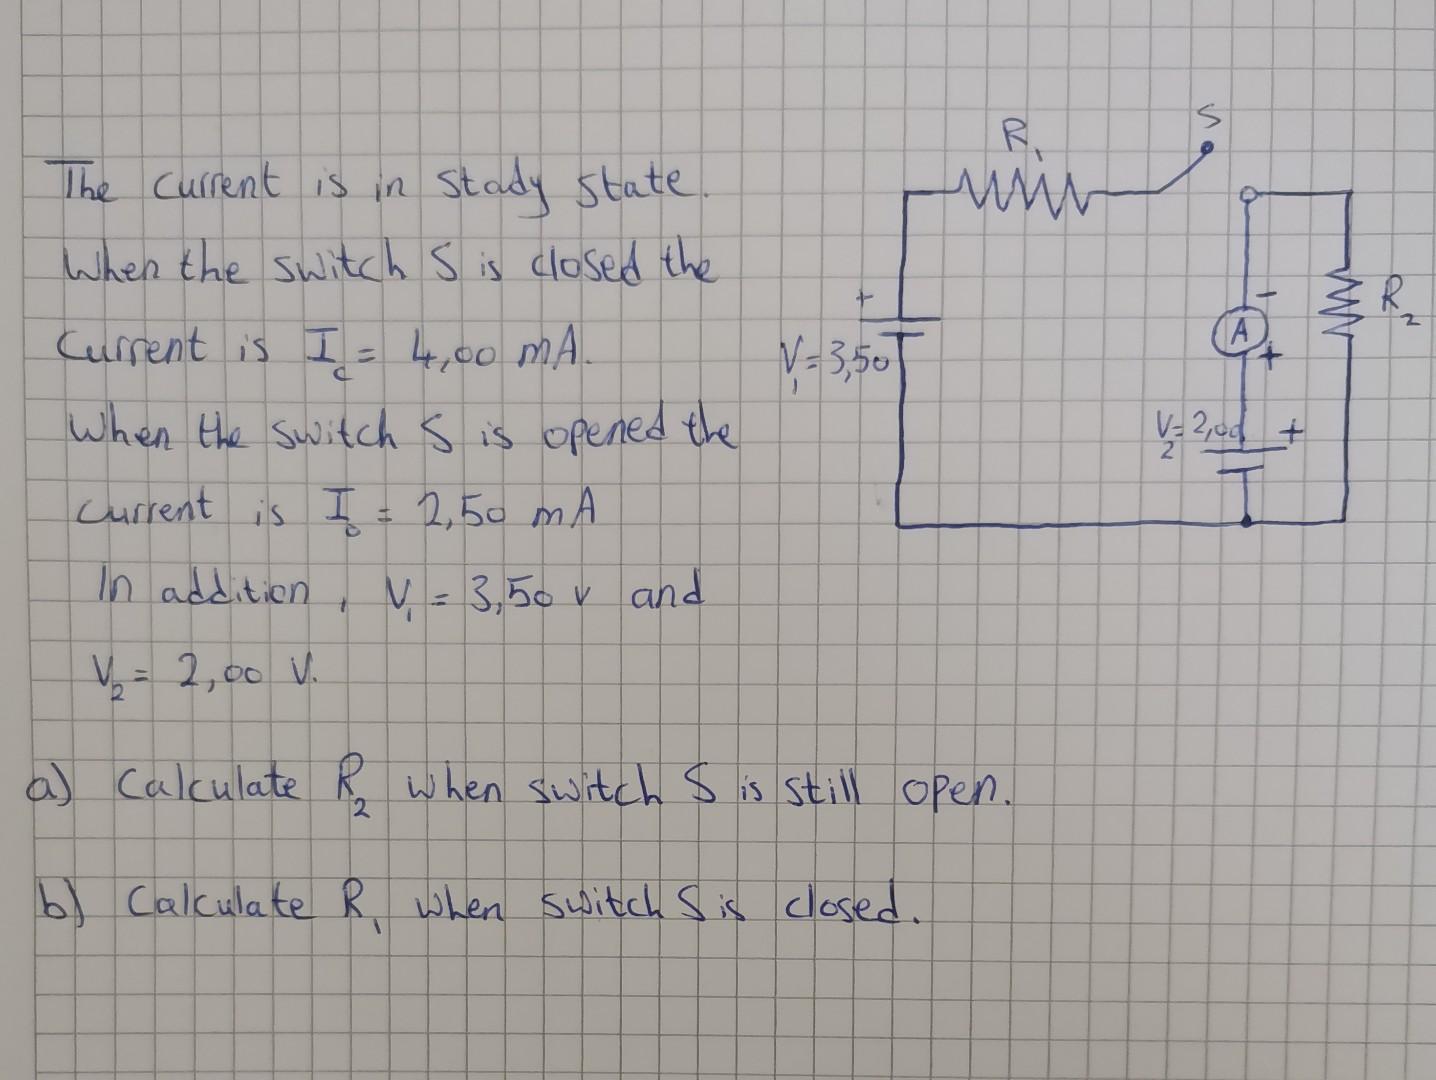 The current is in stady state.
When the switch S is closed the
current is I_c = 4,00 mA.
When the switch S is opened the
current is I_o = 2,50 mA
In addition, V₁ = 3,50 v and
V₂ = 2,00 V.
a) Calculate R₂ when switch S is still open.
b) Calculate R₁ when switch S is closed.
R₁
S
+
V₁ = 3,50
-
A
+
R₂
V₂ = 2,00
+